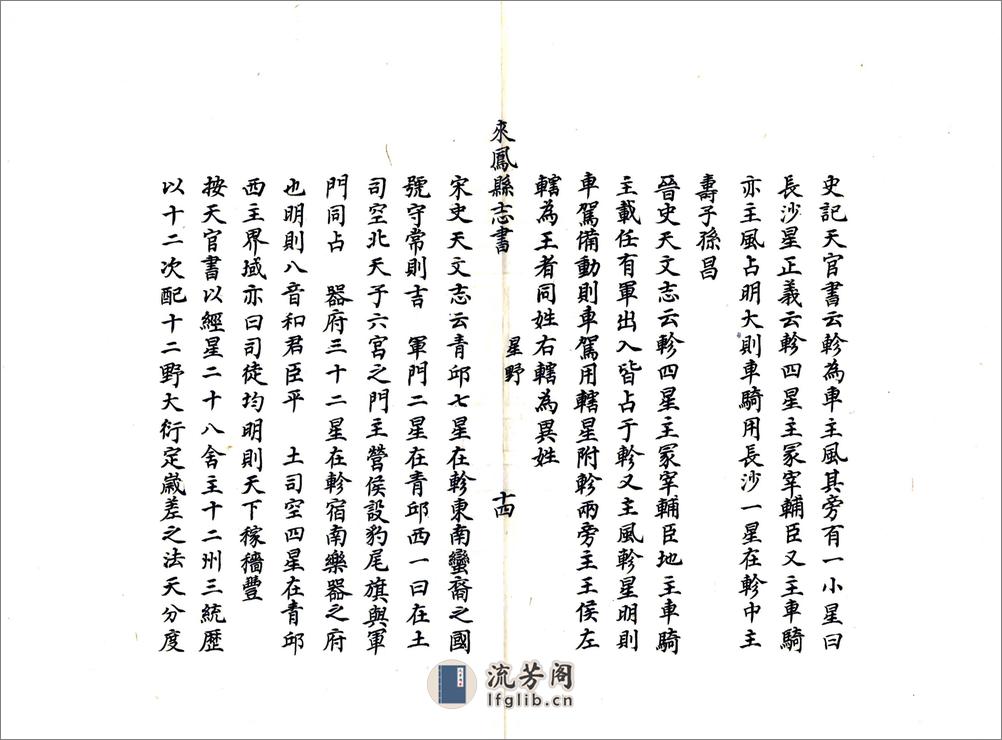 史記天官書云軫為車主風其旁有一小星曰
長沙星正義云軫四星主冢宰輔臣又主車騎
亦主風占明大則車騎用長沙一星在軫中主
壽子孫昌
晉史天文志云軫四星主冢宰輔臣地主車騎
主載任有軍出入皆占于軫又主風軫星明則
車駕備動則車駕用轄星附軫兩旁主王侯左
轄為王者同姓右轄為異姓
來鳳縣志書 星野 十四
宋史天文志云青邱七星在軫東南蠻裔之國
號守常則吉 軍門二星在青邱西一曰在土
司空北天子六宮之門主營侯設豹尾旗與軍
門同占 器府三十二星在軫宿南樂器之府
也明則八音和君臣平 土司空四星在青邱
西主界域亦曰司徒均明則天下稼穡豐
按天官書以經星二十八舍主十二州三統歷
以十二次配十二野大衍定歲差之法天分度
流芳阁
lfglib.cn